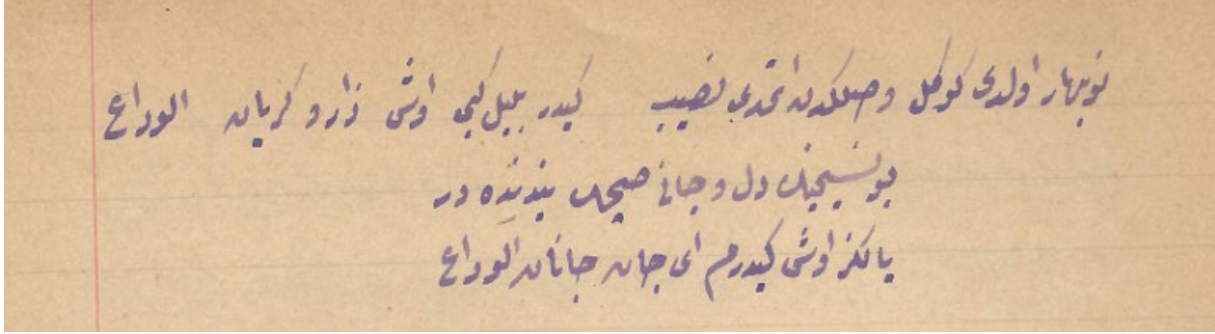 نوبهار اولدی کوکل وصلکدن اتمدی نصیب کیدر بلبل کبی اوش زار و کریان الوداع
دل و جانی صچک بندنده در
یالکز اوش کیدرم ای جان جانان الوداع